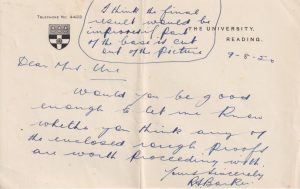 TELEPHONE NO. 4422
I think the final
result would be
improved if part
of the base is cut
out of the picture
THE UNIVERSITY,
READING.
9-8-50
Dear Mr Ure
Would you be good
enough to let me know
whether you think any of
the enclosed rough proofs
are worth proceeding with.
Yours sincerely